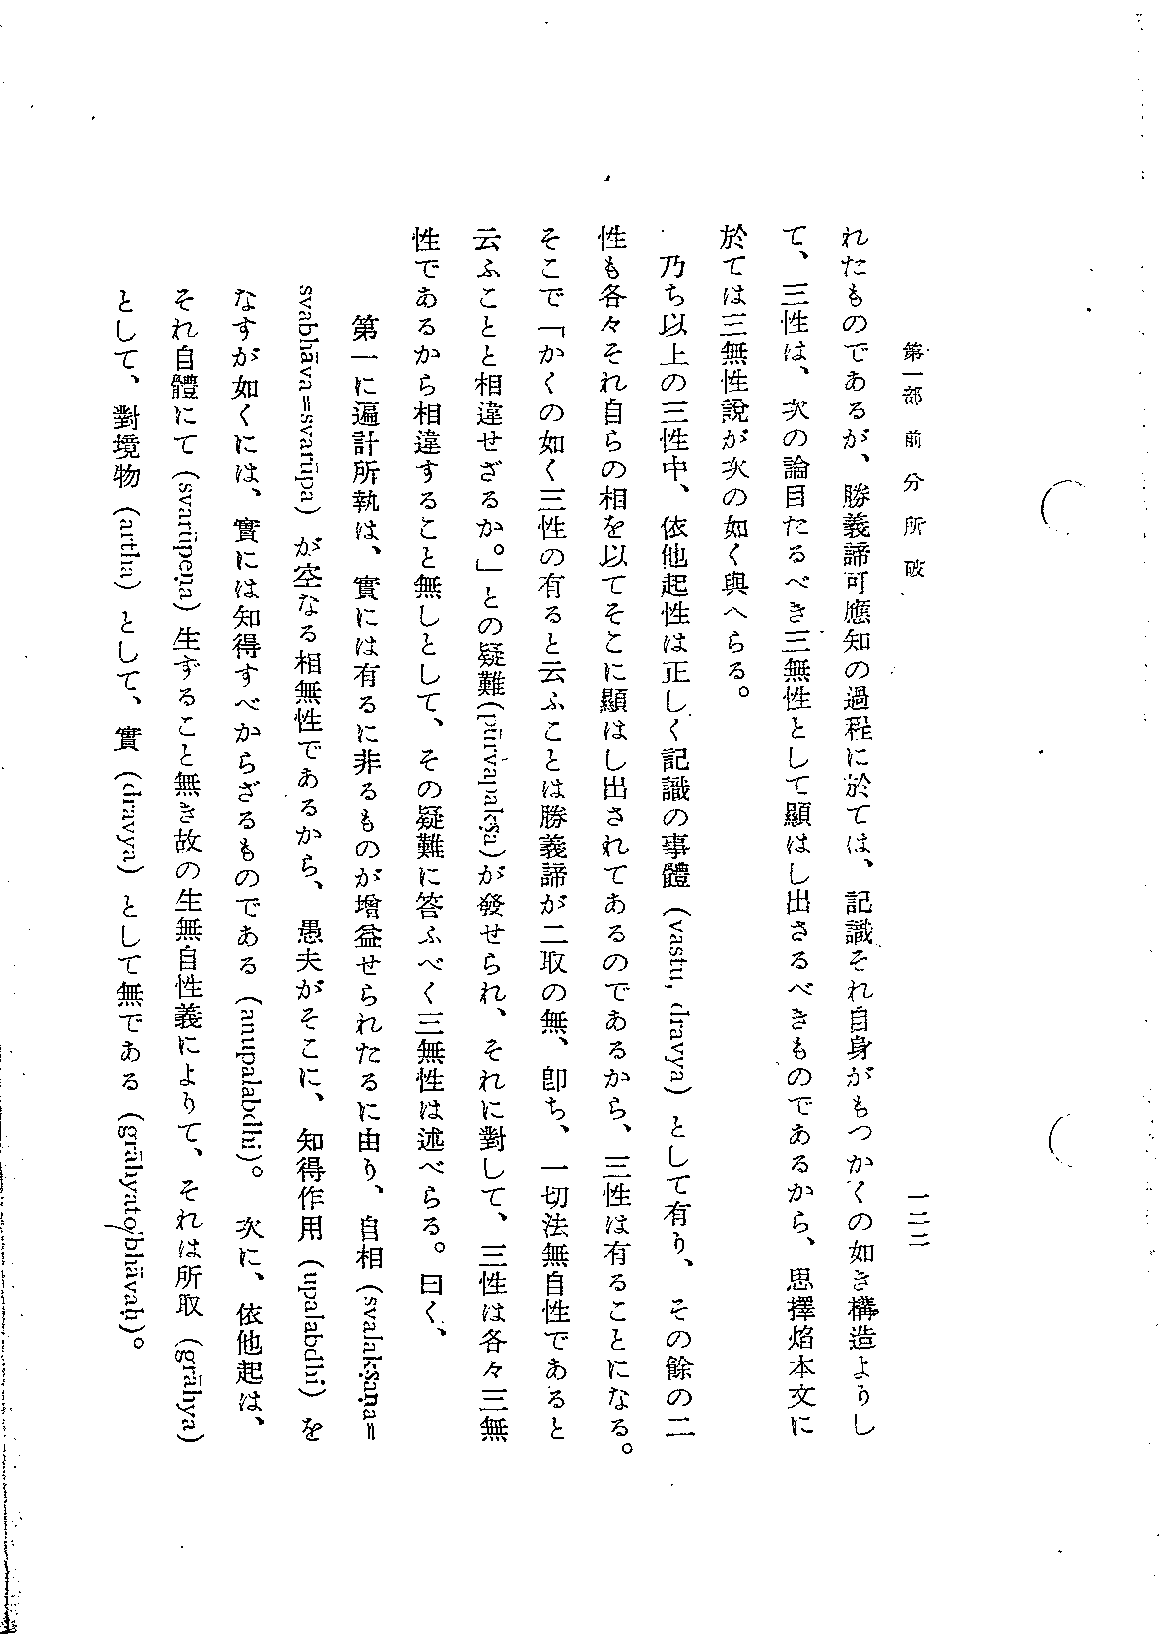 第一部 前分所破
一二二
れたものであるが、勝義諦可應知の過程に於ては、記識それ自身がもつかくの如き構造よりし
て、三性は、次の論目たるべき三無性として顯はし出さるべきものであるから、思擇焰本文に
於ては三無性說が次の如く與へらる。
乃ち以上の三性中、依他起性は正しく記識の事體(vastu, dravya)として有り、その餘の二
性も各々それ自らの相を以てそこに顯はし出されてあるのであるから、三性は有ることになる。
そこで「かくの如く三性の有ると云ふことは勝義諦が二取の無、卽ち、一切法無自性であると
云ふことと相違せざるか。」との疑難(pūrvapakṣa)が發せられ、それに對して、三性は各々三無
性であるから相違すること無しとして、その疑難に答ふべく三無性は述べらる。曰く、
第一に遍計所執は、實には有るに非るものが增益せられたるに由り、自相(svalakṣaṇa=
svabhāva=svarūpa)が空なる相無性であるから、愚夫がそこに、知得作用(upalabdhi)を
なすが如くには、實には知得すべからざるものである(anupalabdhi)。次に、依他起は、
それ自體にて(svarūpeṇa)生ずること無き故の生無自性義によりて、それは所取(grāhya)
として、對境物(artha)として、實(dravya)として無である(grāhyato'bhāvaḥ)。